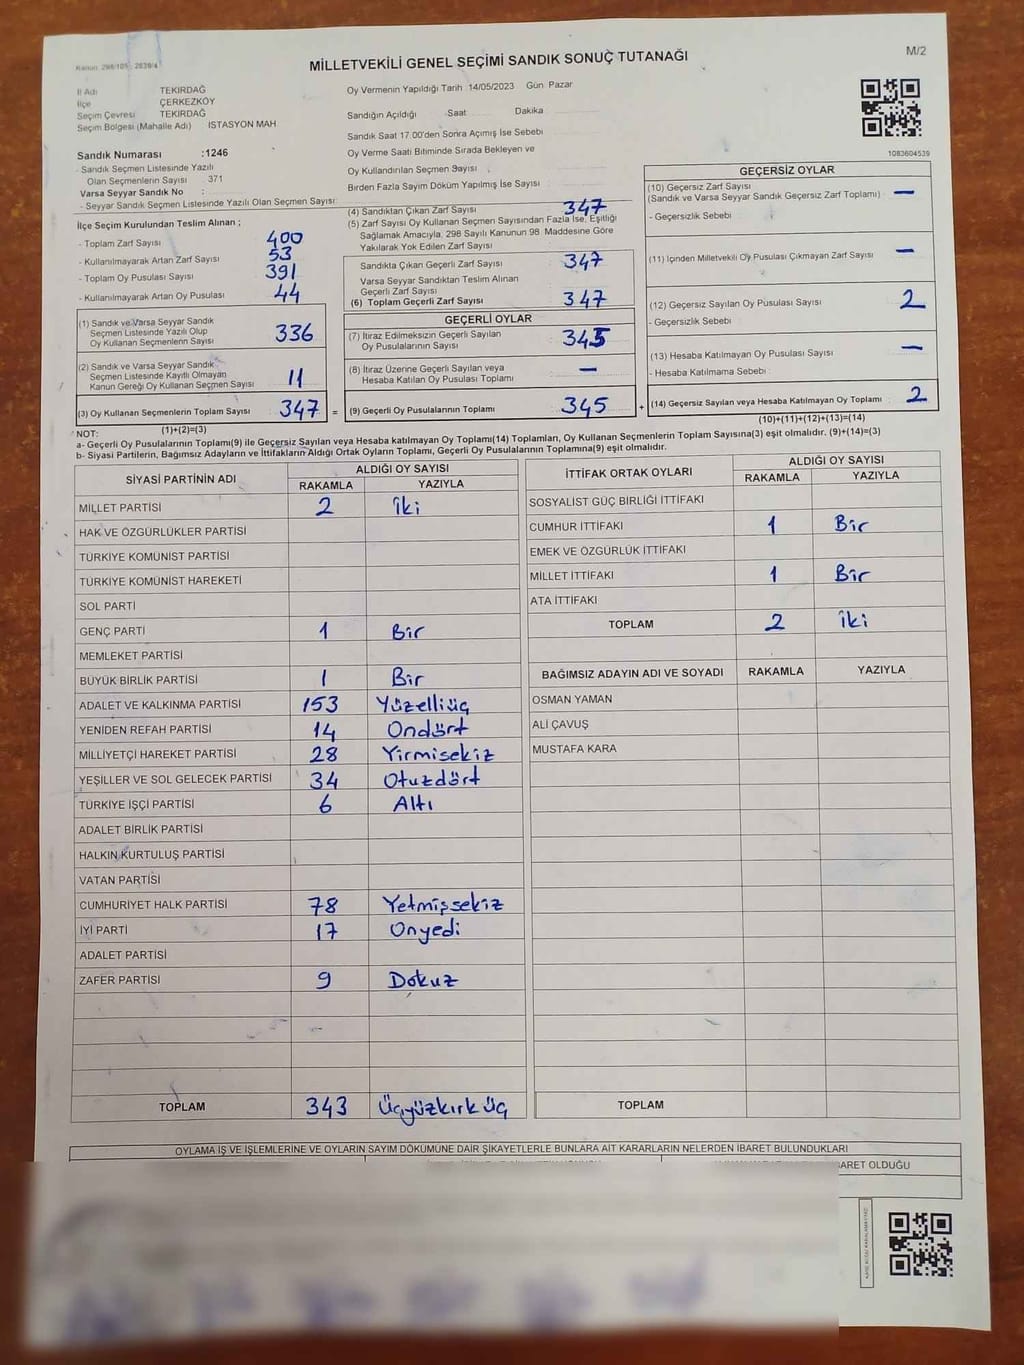 Kanun 298/105 - 2839/4
MİLLETVEKİLİ GENEL SEÇİMİ SANDIK SONUÇ TUTANAĞI
M/2
İl Adı TEKİRDAĞ
İlçe ÇERKEZKÖY
Seçim Çevresi TEKİRDAĞ
Seçim Bölgesi (Mahalle Adı) İSTASYON MAH.
Oy Vermenin Yapıldığı Tarih 14/05/2023 Gün Pazar
Sandığın Açıldığı Saat Dakika
Sandık Saat 17.00'den Sonra Açımış İse Sebebi
Oy Verme Saati Bitiminde Sırada Bekleyen ve
Oy Kullandırılan Seçmen Sayısı
Birden Fazla Sayım Döküm Yapılmış İse Sayısı
1083604539
Sandık Numarası :1246
- Sandık Seçmen Listesinde Yazılı
Olan Seçmenlerin Sayısı 371
Varsa Seyyar Sandık No :
- Seyyar Sandık Seçmen Listesinde Yazılı Olan Seçmen Sayısı:
İlçe Seçim Kurulundan Teslim Alınan ;
- Toplam Zarf Sayısı 400
- Kullanılmayarak Artan Zarf Sayısı 53
- Toplam Oy Pusulası Sayısı 391
- Kullanılmayarak Artan Oy Pusulası 44
(1) Sandık ve Varsa Seyyar Sandık
Seçmen Listesinde Yazılı Olup
Oy Kullanan Seçmenlerin Sayısı 336
(2) Sandık ve Varsa Seyyar Sandık
Seçmen Listesinde Kayıtlı Olmayan
Kanun Gereği Oy Kullanan Seçmen Sayısı 11
(3) Oy Kullanan Seçmenlerin Toplam Sayısı 347 =
(1)+(2)=(3)
(4) Sandıktan Çıkan Zarf Sayısı 347
(5) Zarf Sayısı Oy Kullanan Seçmen Sayısından Fazla İse, Eşitliği
Sağlamak Amacıyla, 298 Sayılı Kanunun 98. Maddesine Göre
Yakılarak Yok Edilen Zarf Sayısı
Sandıkta Çıkan Geçerli Zarf Sayısı 347
Varsa Seyyar Sandıktan Teslim Alınan
Geçerli Zarf Sayısı
(6) Toplam Geçerli Zarf Sayısı 347
GEÇERLİ OYLAR
(7) İtiraz Edilmeksizin Geçerli Sayılan
Oy Pusulalarının Sayısı 345
(8) İtiraz Üzerine Geçerli Sayılan veya
Hesaba Katılan Oy Pusulası Toplamı —
(9) Geçerli Oy Pusulalarının Toplamı 345 +
GEÇERSİZ OYLAR
(10) Geçersiz Zarf Sayısı
(Sandık ve Varsa Seyyar Sandık Geçersiz Zarf Toplamı) —
- Geçersizlik Sebebi
(11) İçinden Milletvekili Oy Pusulası Çıkmayan Zarf Sayısı —
(12) Geçersiz Sayılan Oy Pusulası Sayısı 2
- Geçersizlik Sebebi
(13) Hesaba Katılmayan Oy Pusulası Sayısı —
- Hesaba Katılmama Sebebi :
(14) Geçersiz Sayılan veya Hesaba Katılmayan Oy Toplamı : 2
(10)+(11)+(12)+(13)=(14)
NOT:
a- Geçerli Oy Pusulalarının Toplamı(9) ile Geçersiz Sayılan veya Hesaba katılmayan Oy Toplamı(14) Toplamları, Oy Kullanan Seçmenlerin Toplam Sayısına(3) eşit olmalıdır. (9)+(14)=(3)
b- Siyasi Partilerin, Bağımsız Adayların ve İttifakların Aldığı Ortak Oyların Toplamı, Geçerli Oy Pusulalarının Toplamına(9) eşit olmalıdır.
SİYASİ PARTİNİN ADI ALDIĞI OY SAYISI
RAKAMLA YAZIYLA
MİLLET PARTİSİ 2 İki
HAK VE ÖZGÜRLÜKLER PARTİSİ
TÜRKİYE KOMÜNİST PARTİSİ
TÜRKİYE KOMÜNİST HAREKETİ
SOL PARTİ
GENÇ PARTİ 1 Bir
MEMLEKET PARTİSİ
BÜYÜK BİRLİK PARTİSİ 1 Bir
ADALET VE KALKINMA PARTİSİ 153 Yüzelliüç
YENİDEN REFAH PARTİSİ 14 Ondört
MİLLİYETÇİ HAREKET PARTİSİ 28 Yirmisekiz
YEŞİLLER VE SOL GELECEK PARTİSİ 34 Otuzdört
TÜRKİYE İŞÇİ PARTİSİ 6 Altı
ADALET BİRLİK PARTİSİ
HALKIN KURTULUŞ PARTİSİ
VATAN PARTİSİ
CUMHURİYET HALK PARTİSİ 78 Yetmişsekiz
İYİ PARTİ 17 Onyedi
ADALET PARTİSİ
ZAFER PARTİSİ 9 Dokuz
TOPLAM 343 Üçyüzkırküç
İTTİFAK ORTAK OYLARI ALDIĞI OY SAYISI
RAKAMLA YAZIYLA
SOSYALİST GÜÇ BİRLİĞİ İTTİFAKI
CUMHUR İTTİFAKI 1 Bir
EMEK VE ÖZGÜRLÜK İTTİFAKI
MİLLET İTTİFAKI 1 Bir
ATA İTTİFAKI
TOPLAM 2 İki
BAĞIMSIZ ADAYIN ADI VE SOYADI RAKAMLA YAZIYLA
OSMAN YAMAN
ALİ ÇAVUŞ
MUSTAFA KARA
TOPLAM
OYLAMA İŞ VE İŞLEMLERİNE VE OYLARIN SAYIM DÖKÜMÜNE DAİR ŞİKAYETLERLE BUNLARA AİT KARARLARIN NELERDEN İBARET BULUNDUKLARI
OLDUĞU